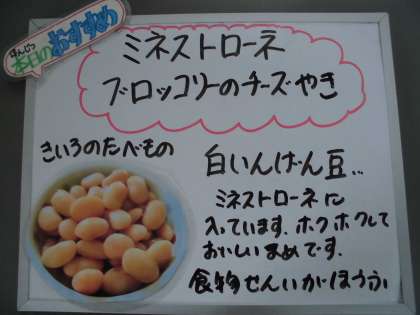 ほんじつ
本日のおすすめ
ミネストローネ
ブロッコリーのチーズやき
きいろのたべもの
白いんげん豆‥
ミネストローネに
入っています。ホクホクして
おいしいまめです。
食物せんいがほうふ